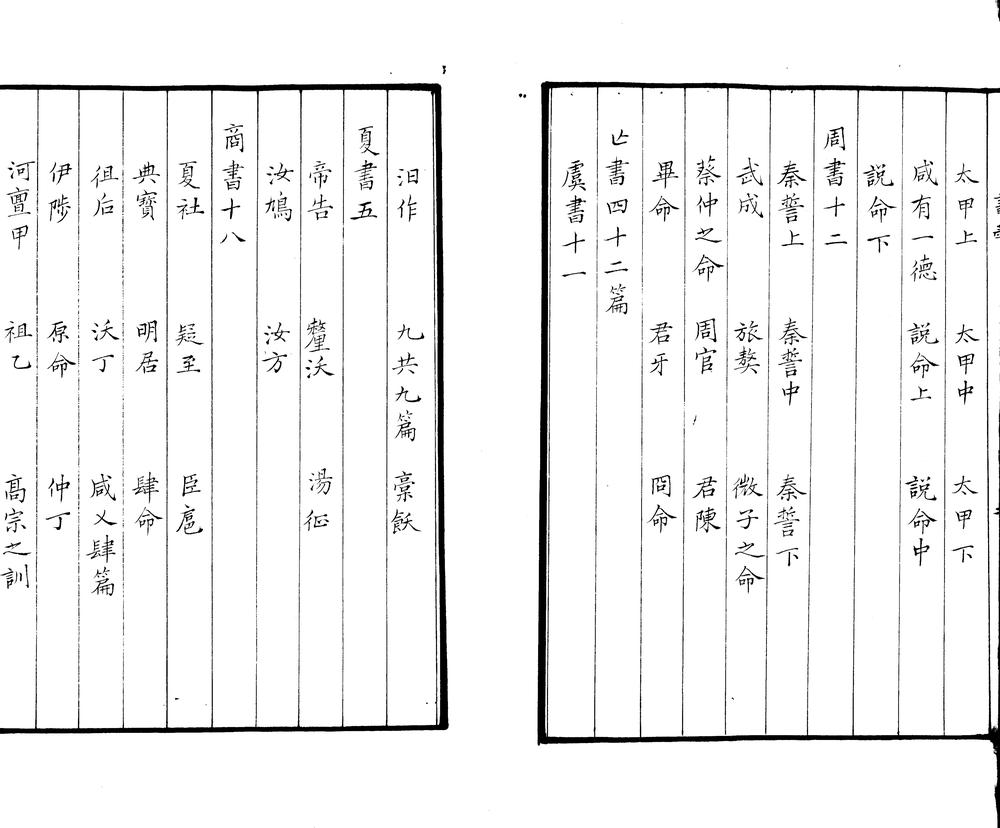 太甲上 太甲中 太甲下
咸有一德 説命上 説命中
説命下
周書十二
秦誓上 秦誓中 秦誓下
武成 旅獒 微子之命
蔡仲之命 周官 君陳
畢命 君牙 冏命
亡書四十二篇
虞書十一
汩作 九共九篇 槀飫
夏書五
帝告 釐沃 湯征
汝鳩 汝方
商書十八
夏社 疑至 臣扈
典寶 明居 肆命
徂后 沃丁 咸乂肆篇
伊陟 原命 仲丁
河亶甲 祖乙 高宗之訓